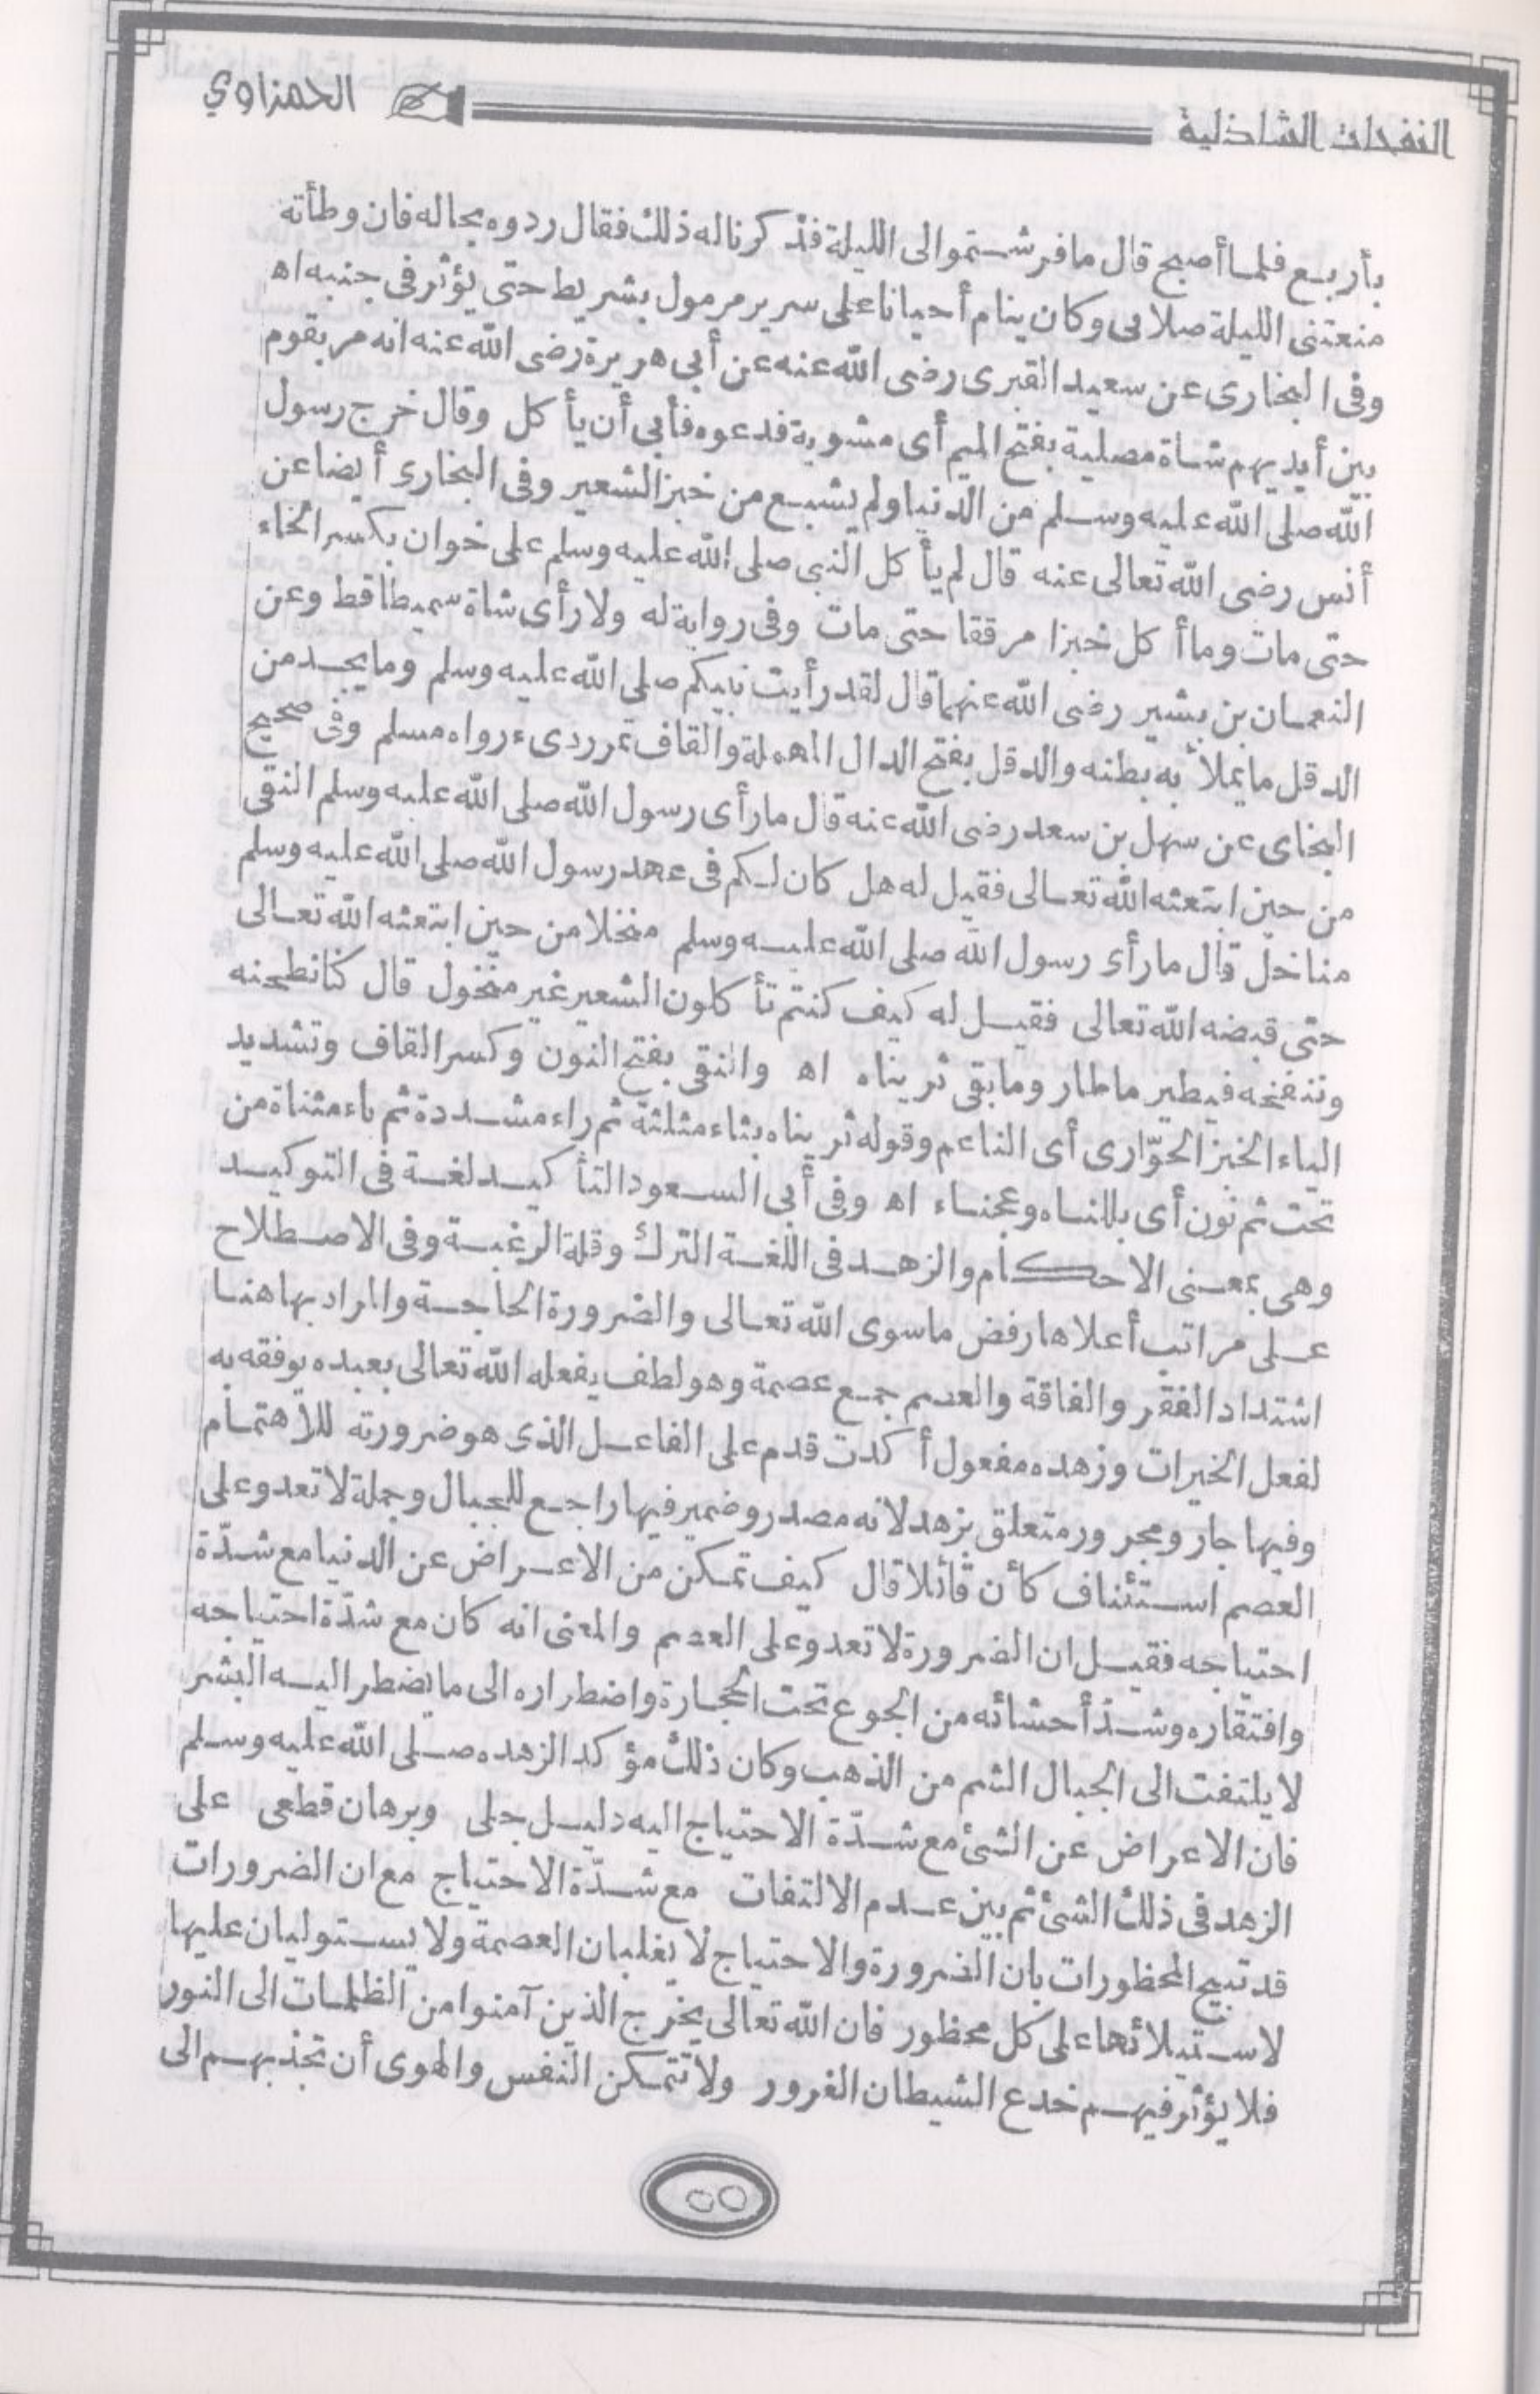 النفحات الشاذلية
الحمزاوي
بأربع فلما أصبح قال ما فرشتموا لى الليلة فذكرنا له ذلك فقال ردوه بحاله فان وطأته
منعتنى الليلة صلاتى وكان ينام أحيانا على سرير مرمول بشريط حتى يؤثر فى جنبه اه
وفى البخارى عن سعيد المقبرى رضى الله عنه عن أبى هريرة رضى الله عنه انه مر بقوم
بين أيديهم شاة مصلية بفتح الميم أى مشوية فدعوه فأبى أن يأكل وقال خرج رسول
الله صلى الله عليه وسلم من الدنيا ولم يشبع من خبز الشعير وفى البخارى أيضا عن
أنس رضى الله تعالى عنه قال لم يأكل النبى صلى الله عليه وسلم على خوان بكسر الخاء
حتى مات وما أكل خبزا مرققا حتى مات وفى رواية له ولا رأى شاة سميطا قط وعن
النعمان بن بشير رضى الله عنهما قال لقد رأيت نبيكم صلى الله عليه وسلم وما يجد من
الدقل ما يملأ به بطنه والدقل بفتح الدال المهملة والقاف تمر ردىء رواه مسلم وفى صحيح
البخاى عن سهل بن سعد رضى الله عنه قال ما رأى رسول الله صلى الله عليه وسلم النقى
من حين ابتعثه الله تعالى فقيل له هل كان لكم فى عهد رسول الله صلى الله عليه وسلم
مناخل قال ما رأى رسول الله صلى الله عليه وسلم منخلا من حين ابتعثه الله تعالى
حتى قبضه الله تعالى فقيل له كيف كنتم تأكلون الشعير غير منخول قال كنا نطحنه
وننفخه فيطير ما طار وما بقى ثريناه اه والنقى بفتح النون وكسر القاف وتشديد
الياء الخبز الحوّارى أى الناعم وقوله ثريناه بثاء مثلثة ثم راء مشددة ثم ياء مثناة من
تحت ثم نون أى بللناه وعجناه اه وفى أبى السعود التأكيد لغة فى التوكيد
وهى بمعنى الاحكام والزهد فى اللغة الترك وقلة الرغبة وفى الاصطلاح
على مراتب أعلاها رفض ما سوى الله تعالى والضرورة الحاجة والمراد بها هنا
اشتداد الفقر والفاقة والعصم جمع عصمة وهو لطف يفعله الله تعالى بعبده يوفقه به
لفعل الخيرات وزهده مفعول أكدت قدم على الفاعل الذى هو ضرورته للاهتمام
وفيها جار ومجرور متعلق بزهد لانه مصدر وضمير فيها راجع للجبال وجملة لا تعدو على
العصم استئناف كأن قائلا قال كيف تمكن من الاعراض عن الدنيا مع شدّة
احتياجه فقيل ان الضرورة لا تعدو على العصم والمعنى انه كان مع شدّة احتياجه
وافتقاره وشدّ أحشائه من الجوع تحت الحجارة واضطراره الى ما يضطر اليه البشر
لا يلتفت الى الجبال الشم من الذهب وكان ذلك مؤكد الزهده صلى الله عليه وسلم
فان الاعراض عن الشئ مع شدّة الاحتياج اليه دليل جلى وبرهان قطعى على
الزهد فى ذلك الشئ ثم بين عدم الالتفات مع شدّة الاحتياج مع ان الضرورات
قد تبيح المحظورات بان الضرورة والاحتياج لا يغلبان العصمة ولا يستوليان عليها
لاستيلائها على كل محظور فان الله تعالى يخرج الذين آمنوا من الظلمات الى النور
فلا يؤثر فيهم خدع الشيطان الغرور ولا تتمكن النفس والهوى أن تجذبهم الى
٥٥